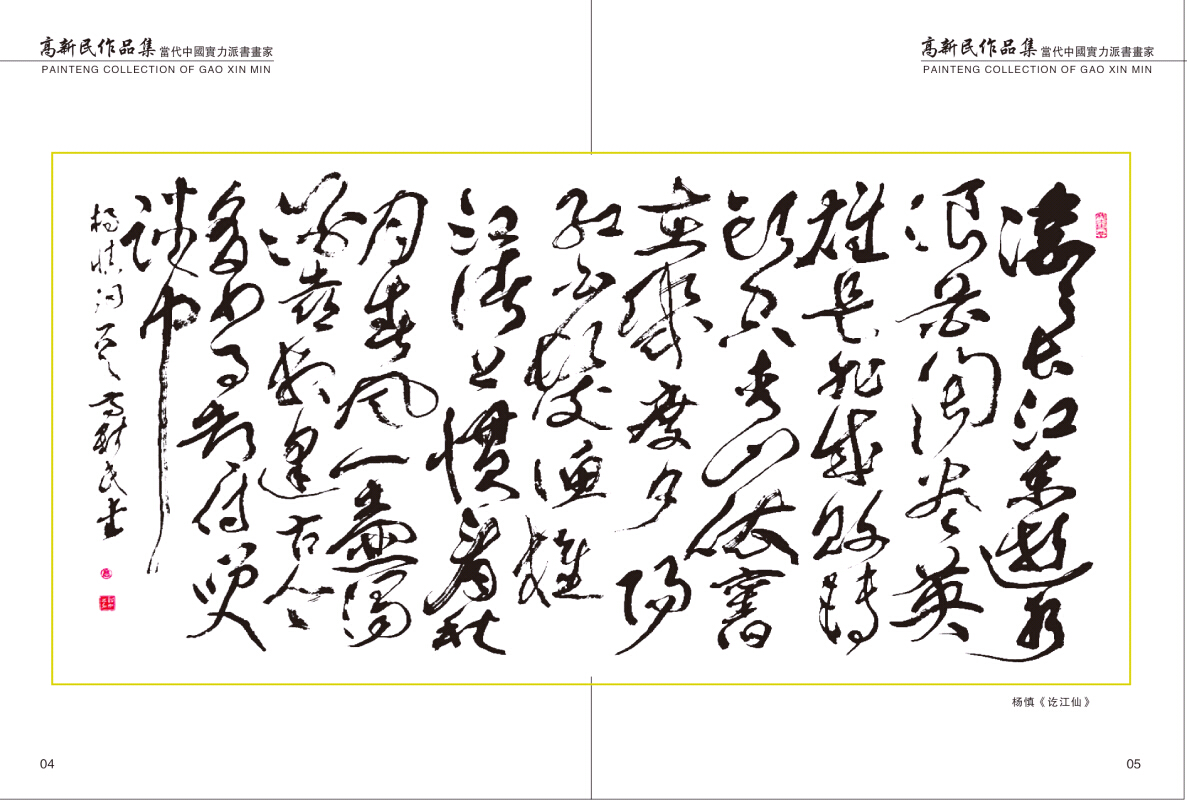 高新民作品集 當代中國實力派書畫家
PAINTENG COLLECTION OF GAO XIN MIN
高新民作品集 當代中國實力派書畫家
PAINTENG COLLECTION OF GAO XIN MIN
滚々长江東逝水
浪花淘尽英
雄是非成敗轉
頭空青山依舊
在幾度夕陽
红白髮渔樵
江渚上慣看秋
月春风一壺濁
酒喜相逢古今
多少事都付笑
談中
杨慎词 高新民书
杨慎《讫江仙》
04
05